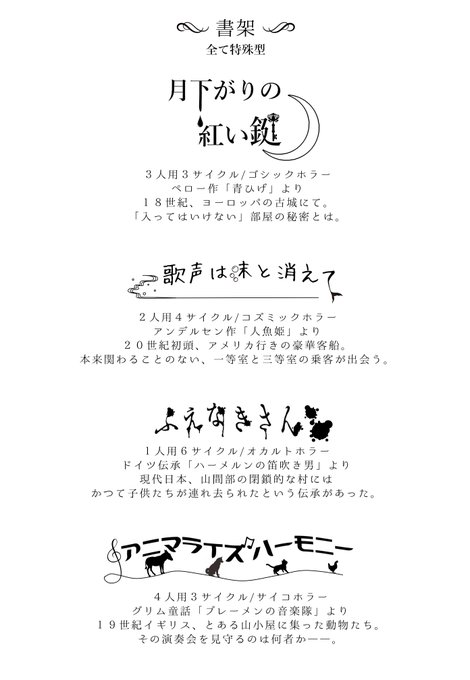 書架
全て特殊型
月下がりの
紅い鍵
3人用3サイクル/ゴシックホラー
ペロー作「青ひげ」より
18世紀、ヨーロッパの古城にて。
「入ってはいけない」部屋の秘密とは。
歌声は沫と消えて
2人用4サイクル/コズミックホラー
アンデルセン作「人魚姫」より
20世紀初頭、アメリカ行きの豪華客船。
本来関わることのない、一等室と三等室の乗客が出会う。
ふえなきさん
1人用6サイクル/オカルトホラー
ドイツ伝承「ハーメルンの笛吹き男」より
現代日本、山間部の閉鎖的な村には
かつて子供たちが連れ去られたという伝承があった。
アニマライズ・ハーモニー
4人用3サイクル/サイコホラー
グリム童話「ブレーメンの音楽隊」より
19世紀イギリス、とある山小屋に集った動物たち。
その演奏会を見守るのは何者か——。